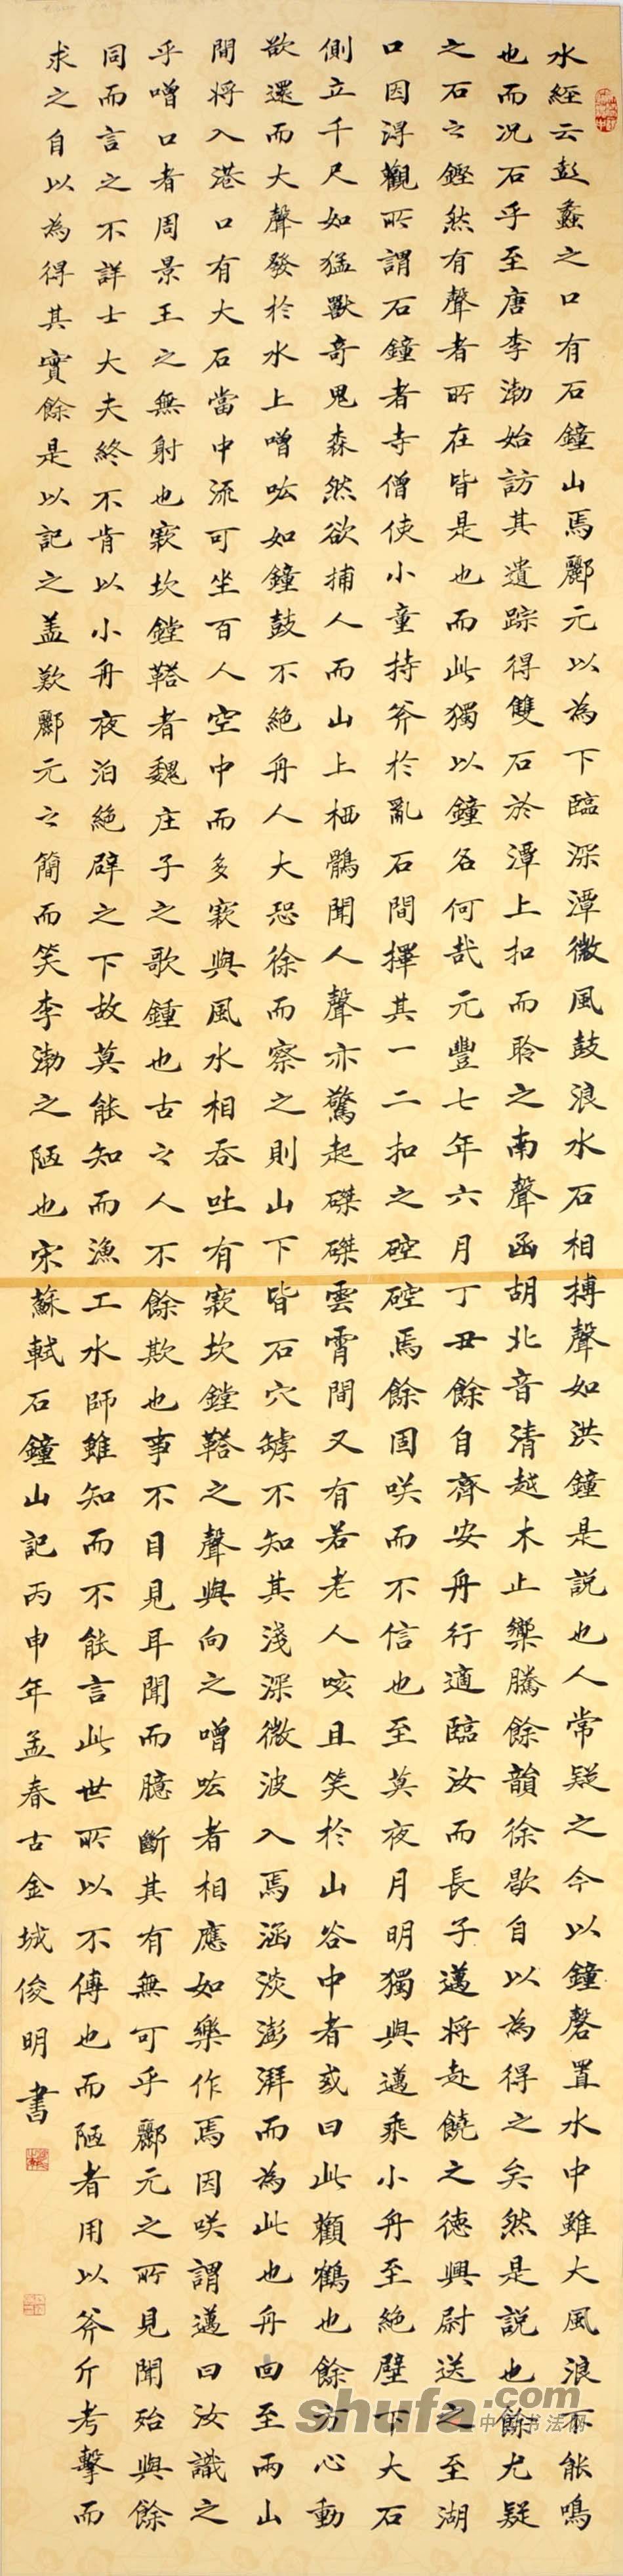 水經云彭蠡之口有石鐘山焉酈元以為下臨深潭微風鼓浪水石相搏聲如洪鐘是說也人常疑之今以鐘磬置水中雖大風浪不能鳴
也而況石乎至唐李渤始訪其遺踪得雙石於潭上扣而聆之南聲函胡北音清越木止響騰餘韻徐歇自以為得之矣然是說也餘尤疑
之石之鏗然有聲者所在皆是也而此獨以鐘名何哉元豐七年六月丁丑餘自齊安舟行適臨汝而長子邁將赴饒之德興尉送之至湖
口因淂觀所謂石鐘者寺僧使小童持斧於亂石間擇其一二扣之硿硿焉餘固咲而不信也至莫夜月明獨與邁乘小舟至絶壁下大石
側立千尺如猛獸奇鬼森然欲捕人而山上栖鶻聞人聲亦驚起磔磔雲霄間又有若老人咳且笑於山谷中者或曰此顴鶴也餘方心動
欲還而大聲發於水上噌吰如鐘鼓不絶舟人大恐徐而察之則山下皆石穴罅不知其淺深微波入焉涵淡澎湃而為此也舟回至兩山
間將入港口有大石當中流可坐百人空中而多竅與風水相吞吐有窾坎鏜鞳之聲與向之噌吰者相應如樂作焉因咲謂邁曰汝識之
乎噌口者周景王之無射也窾坎鏜鞳者魏庄子之歌鍾也古之人不餘欺也事不目見耳聞而臆斷其有無可乎酈元之所見聞殆與餘
同而言之不詳士大夫終不肯以小舟夜泊絶辟之下故莫能知而漁工水師雖知而不能言此世所以不傳也而陋者用以斧斤考擊而
求之自以為得其實餘是以記之盖歎酈元之簡而笑李渤之陋也宋蘇軾石鐘山記丙申年孟春古金城俊明書
shufa.com
中国书法网